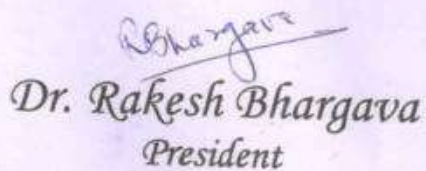 RBhargava
Dr. Rakesh Bhargava
President